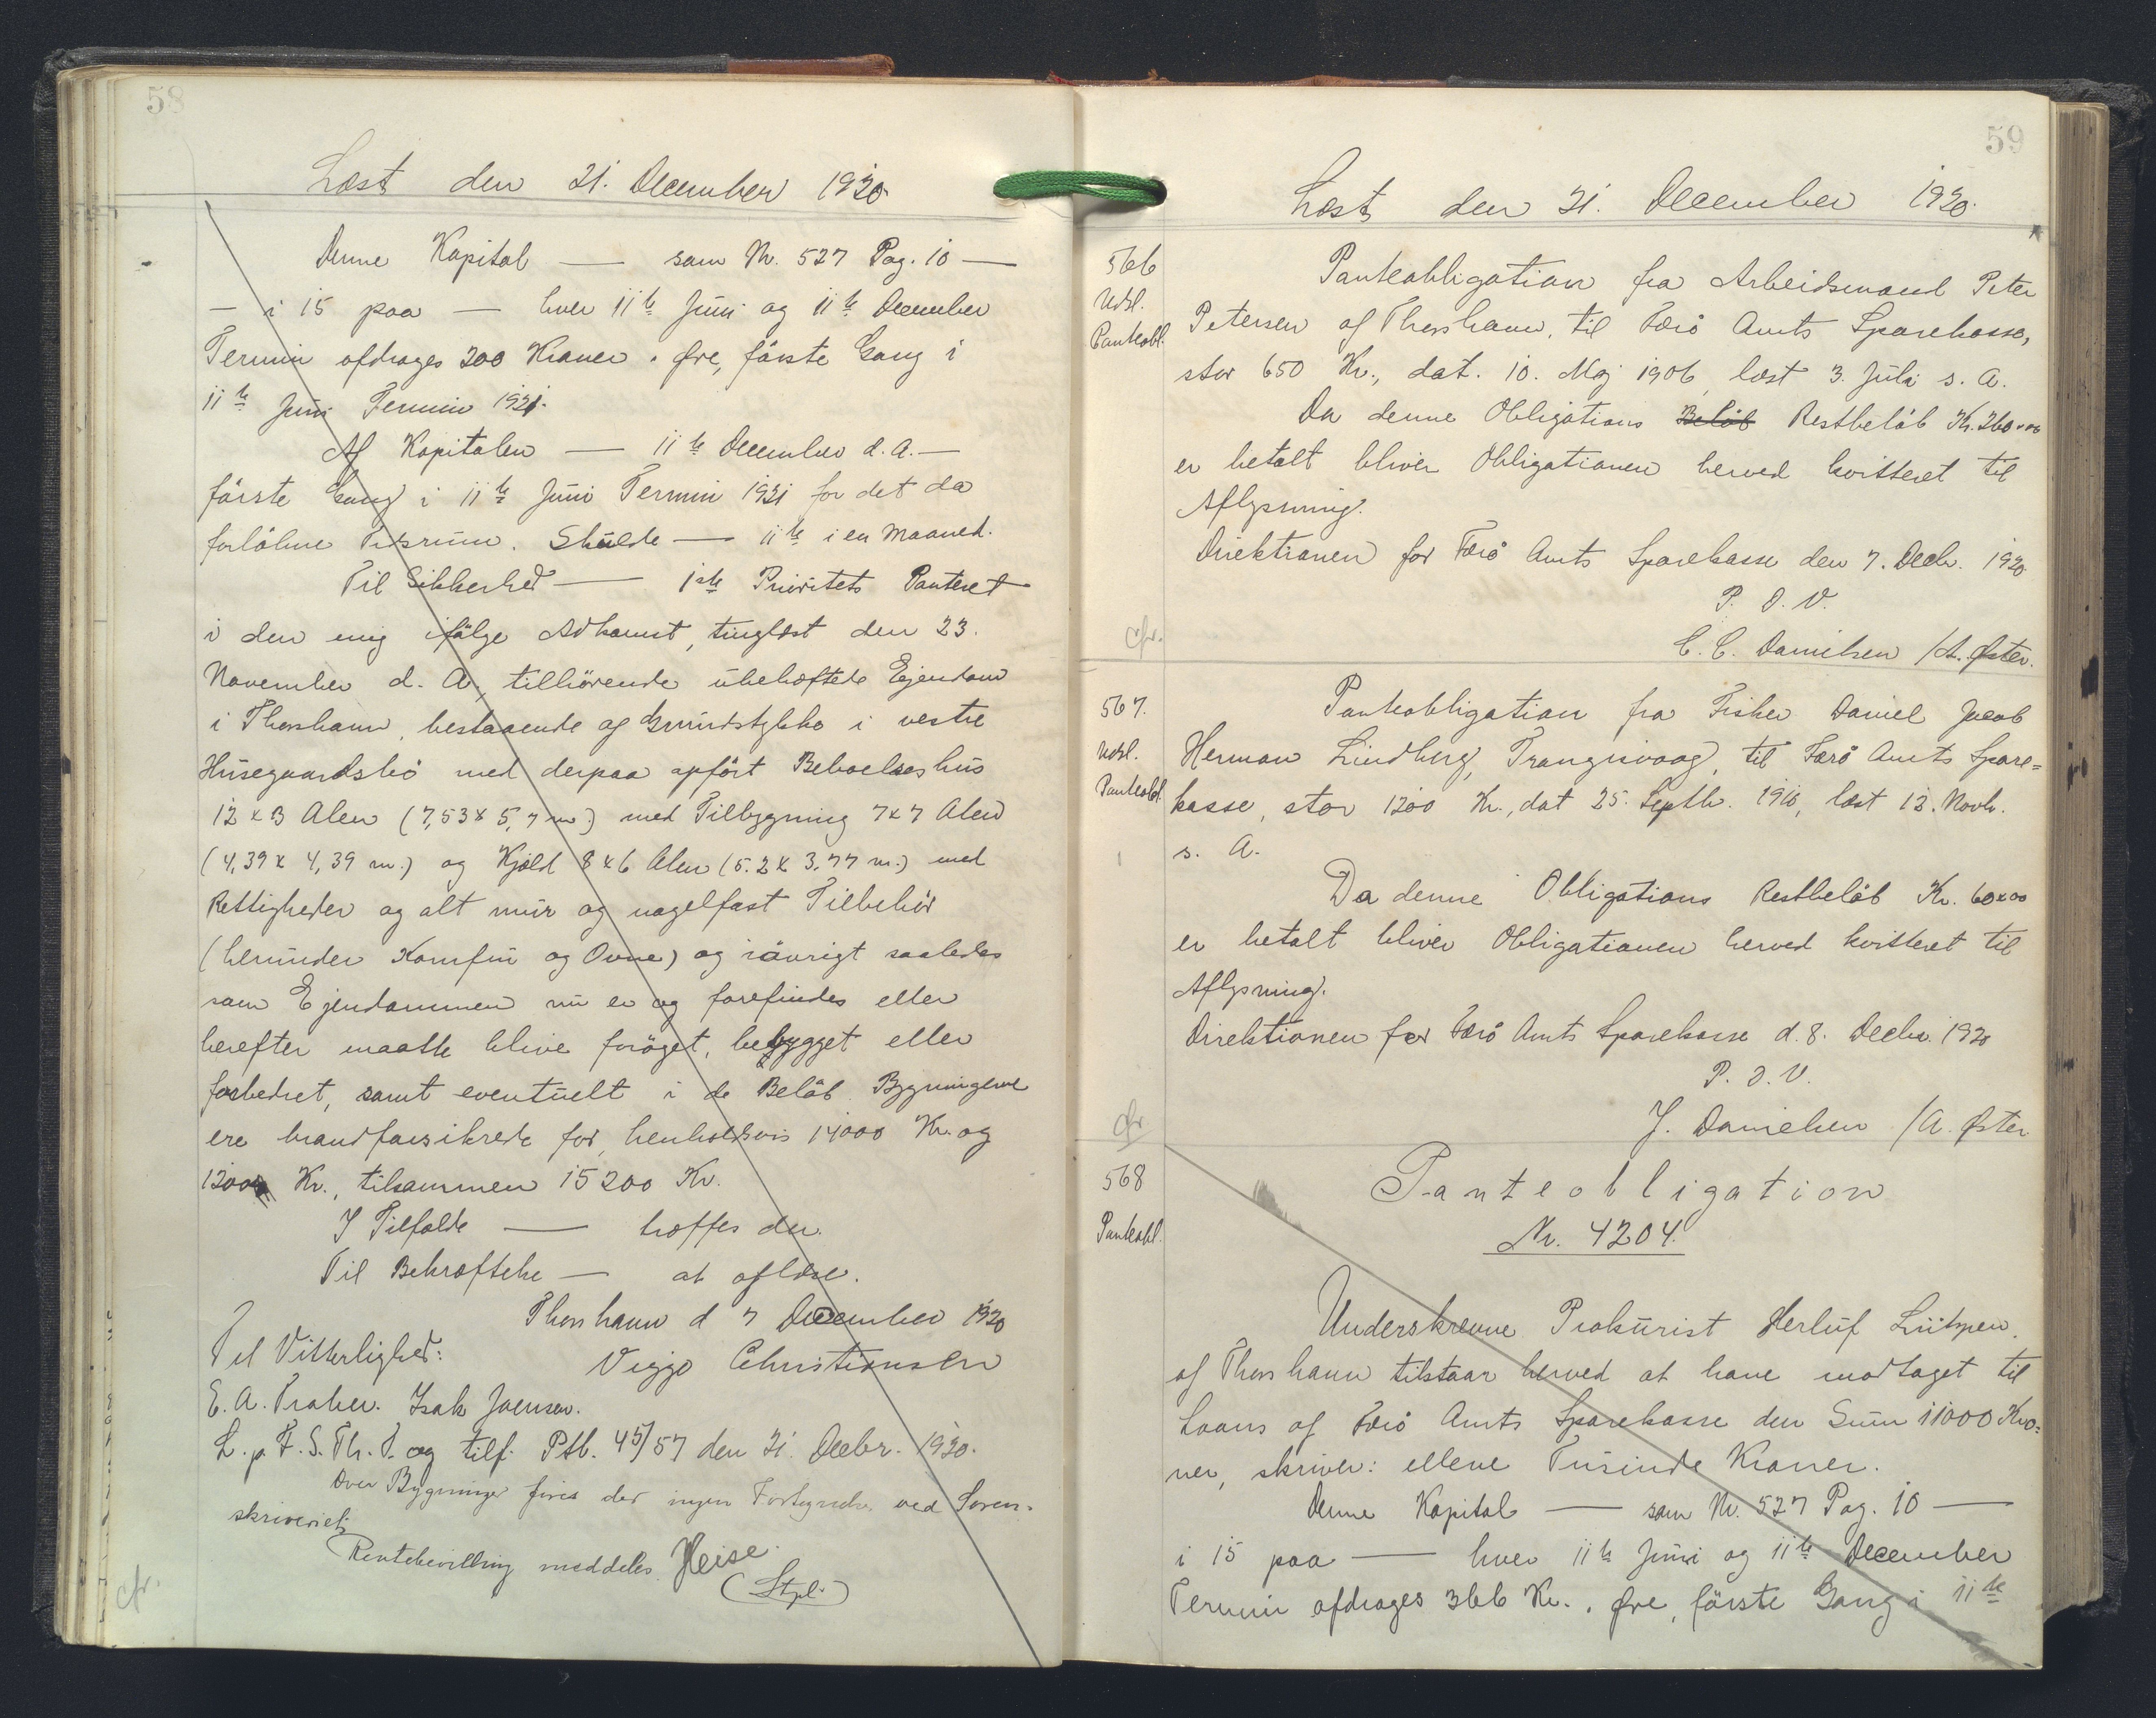 58
Læst den 21. December 1920.
Denne Kapital — som Nr. 527 Pag. 10 —
— i 15 paa — hver 11te Juni og 11te December
Termin afdrages 200 Kroner " Øre, første Gang i
11te Juni Termin 1921.
Af Kapitalen — 11te December d. A. —
første Gang i 11te Juni Termin 1921 for det da
forløbne Tidsrum. Skulde — 11te i en Maaned.
Til Sikkerhed — 1ste Prioritets Panteret
i den mig ifølge Adkomst, tinglæst den 23.
November d. A., tilhørende ubehæftede Ejendom
i Thorshavn, bestaaende af Grundstykke i vestre
Husegaardsbø med derpaa opført Beboelseshus
12 x 9 Alen (7,53 x 5,7 m.) med Tilbygning 7x7 Alen
(4,39 x 4,39 m.) og Kjøld 8x6 Alen (5.2 x 3.77 m.) med
Rettigheder og alt mur og nagelfast Tilbehør
(herunder Komfur og Ovne) og iøvrigt saaledes
som Ejendommen nu er og forefindes eller
herefter maatte blive forøget, bebygget eller
forbedret, samt eventuelt i de Beløb Bygningerne
ere brandforsikrede for, henholdsvis 14000 Kr. og
1200 Kr., tilsammen 15200 Kr.
I Tilfælde — træffes der.
Til Bekræftelse — at aflæse.
Thorshavn d 7 December 1920
Til Vitterlighed: Viggo Christiansen
E. A. Isak Joensen.
L. p. F. S. Th. T. og tilf. Ptb. 45/57 den 21. Decbr. 1920.
Over Bygninger føres der ingen Fortegnelse ved Soren-
skriveriet.
Rentebevilling meddeles. Heise.
(Stpl.)
cfr.
59
Læst den 21. December 1920.
566
Udsl.
Panteobl.
Panteobligation fra Arbeidsmand Peter
Petersen af Thorshavn, til Færø Amts Sparekasse,
stor 650 Kr., dat. 10. Maj 1906, læst 3. Juli s. A.
Da denne Obligations Beløb Restbeløb Kr. 260 " 00
er betalt bliver Obligationen herved kvitteret til
Aflysning.
Direktionen for Færø Amts Sparekasse den 7. Decbr. 1920
P. D. V.
C. C. Danielsen / A. Øster.
cfr.
567.
Udsl.
Panteobl.
Panteobligation fra Fisker Daniel Jacob
Herman Lindberg, Trangisvaag, til Færø Amts Spare=
kasse, stor 1200 Kr., dat 25. Septbr. 1910, læst 12. Novbr.
s. A.
Da denne Obligations Restbeløb Kr. 60 x 00
er betalt bliver Obligationen herved kvitteret til
Aflysning.
Direktionen for Færø Amts Sparekasse d. 8. Decbr. 1920
P. D. V.
J. Danielsen / A. Øster
cfr
568
Panteobl.
Panteobligation
Nr. 4204.
Underskrevne Prokurist Herluf Lützen.
af Thorshavn tilstaar herved at have modtaget til
Laans af Færø Amts Sparekasse den Sum 11000 Kro=
ner, skriver: elleve Tusinde Kroner.
Denne Kapital — som Nr. 527 Pag. 10 —
i 15 paa — hver 11te Juni og 11te December
Termin afdrages 366 Kr. " Øre, første Gang i 11te